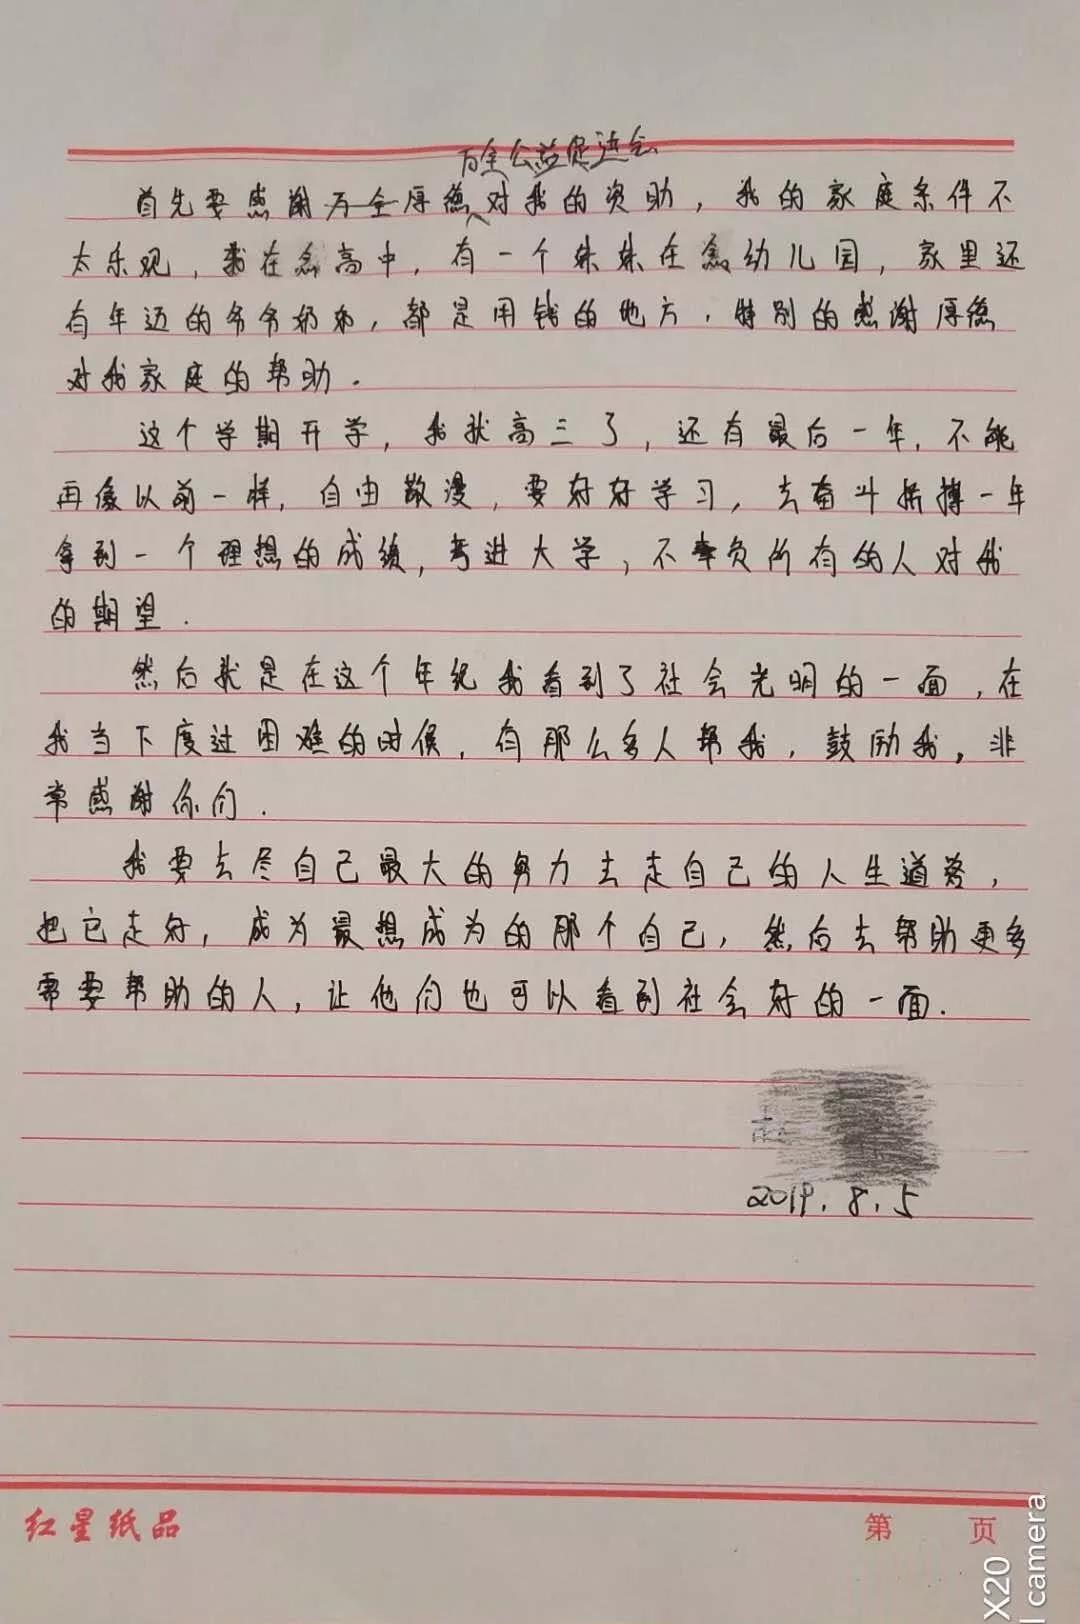 万全公益促进会
首先要感谢万全厚德对我的资助，我的家庭条件不
太乐观，我在念高中，有一个妹妹在念幼儿园，家里还
有年迈的爷爷奶奶，都是用钱的地方，特别的感谢厚德
对我家庭的帮助．
这个学期开学，我就高三了，还有最后一年，不能
再像以前一样，自由散漫，要好好学习，去奋斗拼搏一年
拿到一个理想的成绩，考进大学，不辜负所有的人对我
的期望．
然后就是在这个年纪我看到了社会光明的一面，在
我当下度过困难的时候，有那么多人帮我，鼓励我，非
常感谢你们．
我要去尽自己最大的努力去走自己的人生道路，
把它走好，成为最想成为的那个自己，然后去帮助更多
需要帮助的人，让他们也可以看到社会好的一面．
2019.8.5
红星纸品
第 页
X20
camera